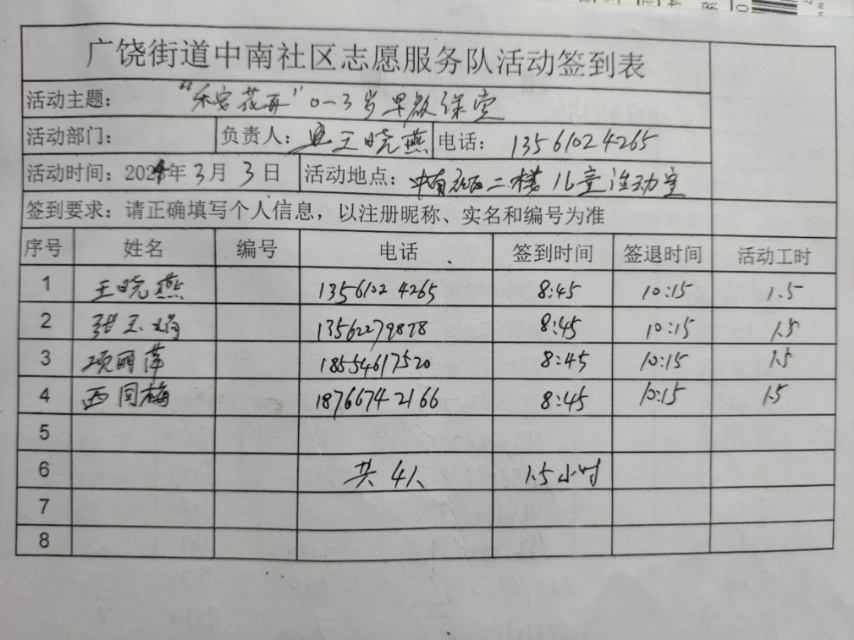 广饶街道中南社区志愿服务队活动签到表
活动主题： “禾客花开”0—3岁早教课堂
活动部门： 负责人：王晓燕 电话： 13561024265
活动时间：2024年3月3日 活动地点：中南社区二楼儿童活动室
签到要求：请正确填写个人信息，以注册昵称、实名和编号为准
序号 姓名 编号 电话 签到时间 签退时间 活动工时
1 王晓燕 13561024265 8:45 10:15 1.5
2 张玉娟 13562279878 8:45 10:15 1.5
3 项丽萍 18554617520 8:45 10:15 1.5
4 西国梅 18766742166 8:45 10:15 1.5
5
6 共4人 1.5小时
7
8